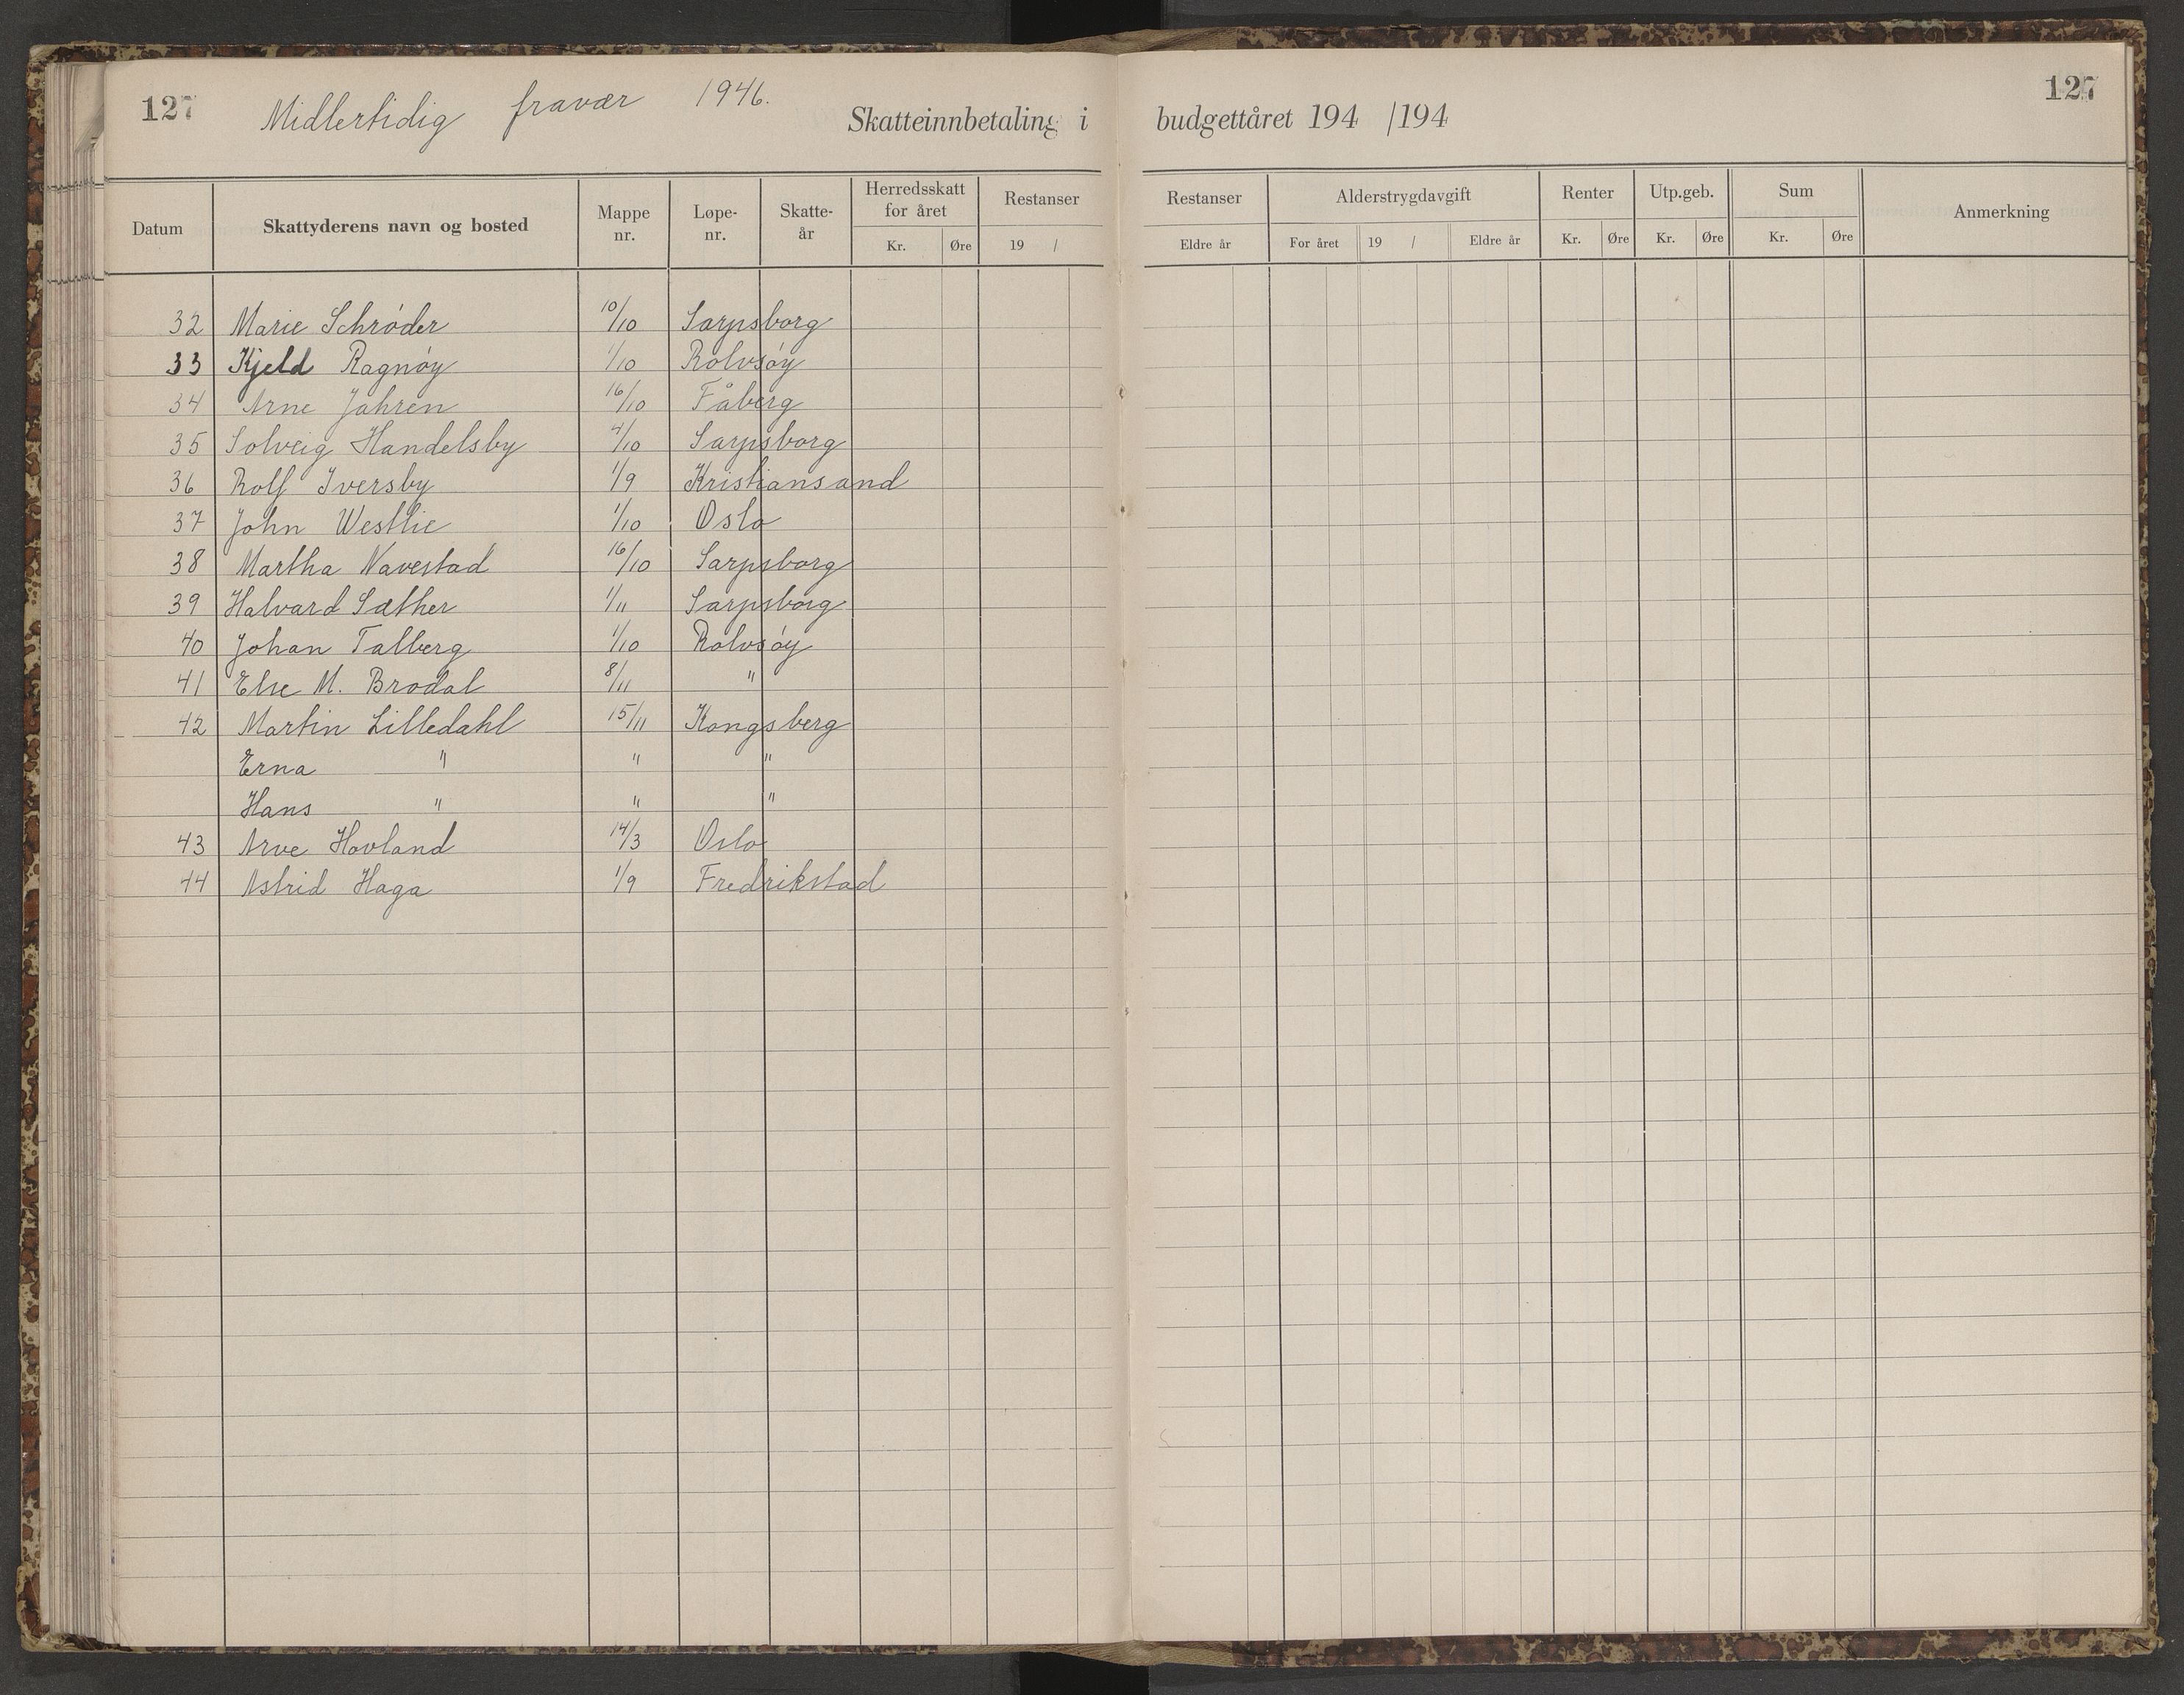 127 Midlertidig fravær 1946. 127
Skatteinnbetaling i budgettåret 194 /194
Datum Skattyderens navn og bosted Mappe nr. Løpe- nr. Skatte- år Herredsskatt for året Kr. Øre Restanser 19 / Restanser Eldre år Alderstrygdavgift For året 19 / Eldre år Renter Kr. Øre Utp.geb. Kr. Øre Sum Kr. Øre Anmerkning
32 Marie Schrøder 10/10 Sarpsborg
33 Kjeld Ragnøy 1/10 Rolvsøy
34 Arne Jahren 16/10 Fåberg
35 Solveig Handelsby 4/10 Sarpsborg
36 Rolf Iversby 1/9 Kristiansand
37 John Westlie 1/10 Oslo
38 Martha Navestad 16/10 Sarpsborg
39 Halvard Sæther 1/11 Sarpsborg
40 Johan Talberg 1/10 Rolvsøy
41 Else M. Brodal 8/11 "
42 Martin Lilledahl 15/11 Kongsberg
Erna " " "
Hans " " "
43 Arve Hovland 14/3 Oslo
44 Astrid Haga 1/9 Fredrikstad